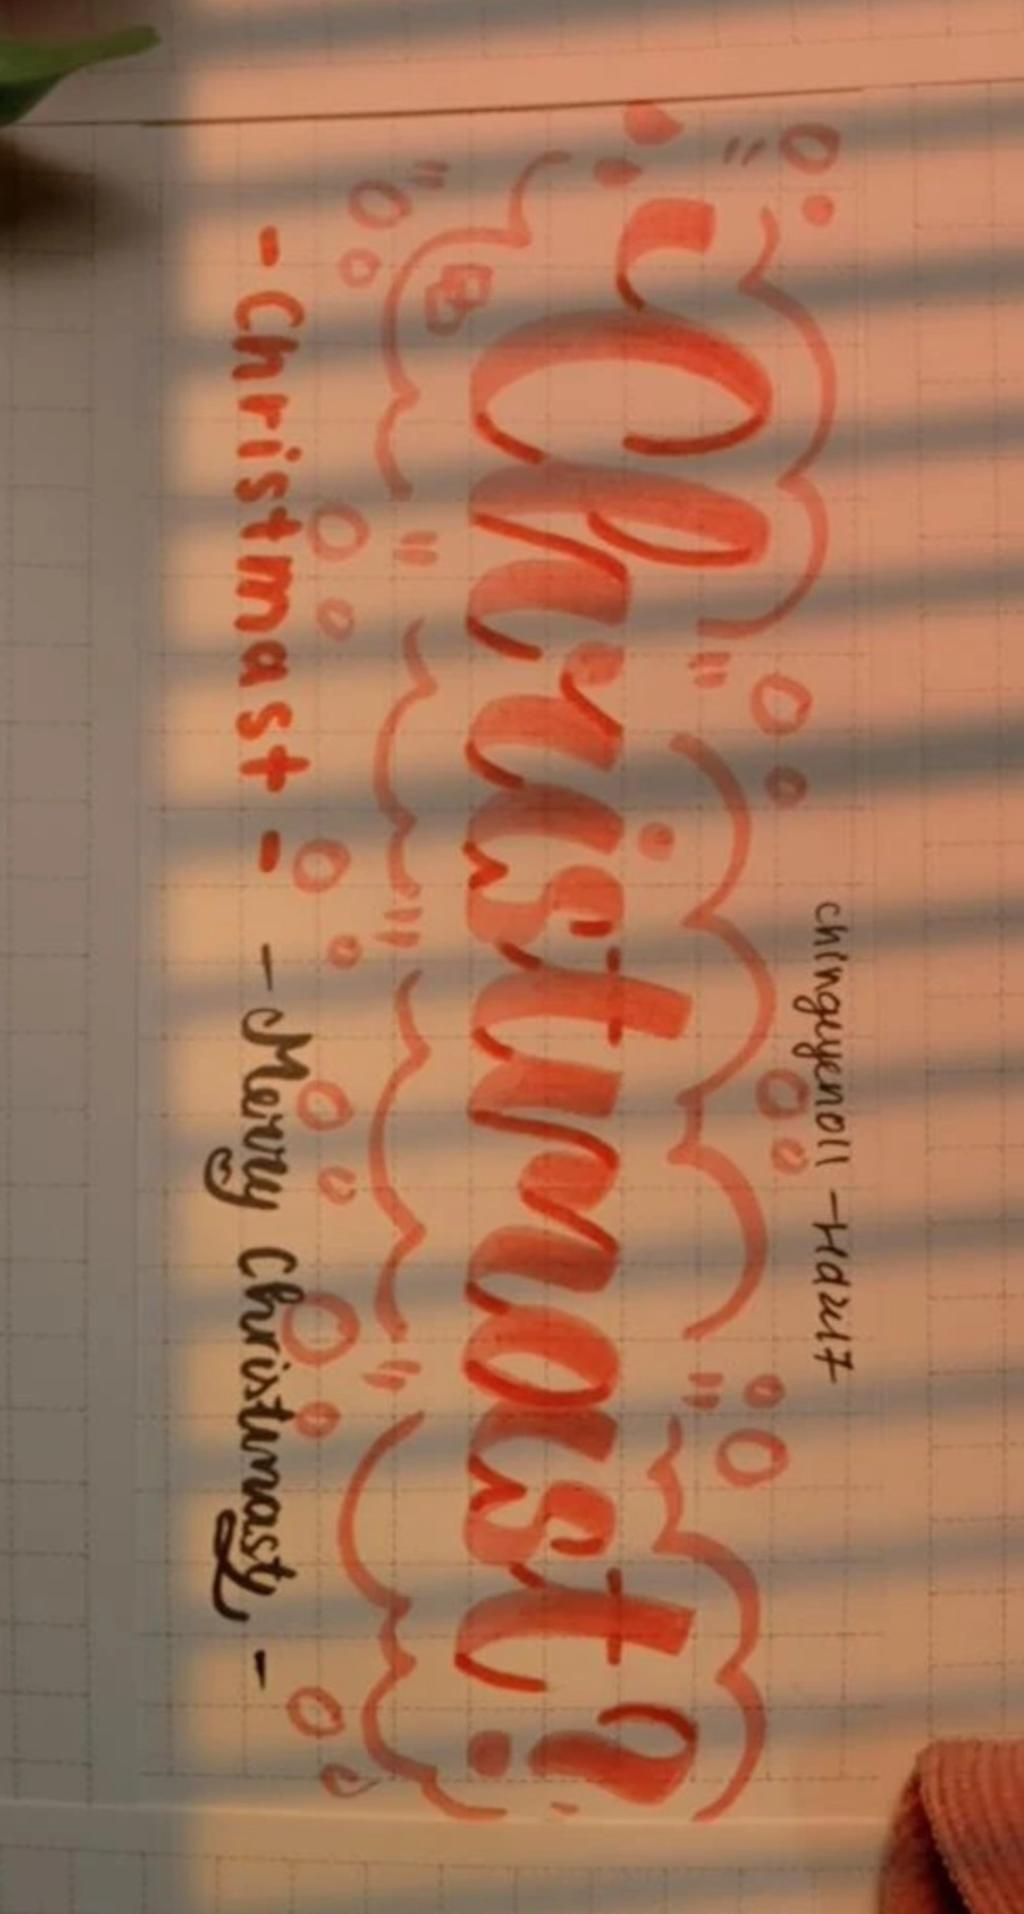 chinguyenoll - Ha217
Christmast?
- Christmast - - Merry Christmasty -